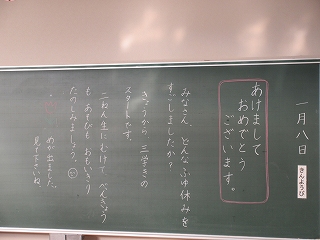 一月八日
きんようび
あけまして
おめでとう
ございます。
みなさん、どんなふゆ休みを
すごしましたか？
きょうから 三学きの
スタートです。
二ねん生にむけて べんきょう
も あそびも おもいきり
たのしみましょう。
めが出ました。
見て下さいね。